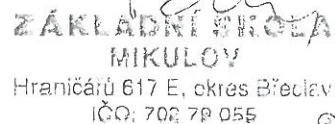 ZÁKLADNÍ ŠKOLA
MIKULOV
Hraničářů 617 E, okres Břeclav
IČO: 702 79 055